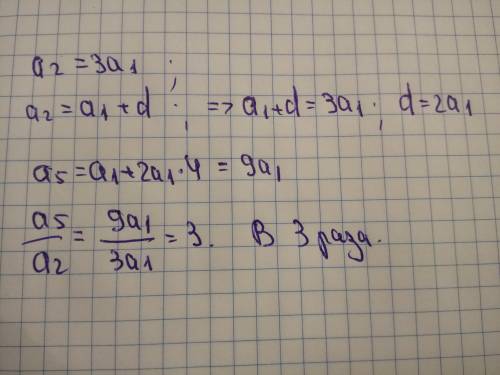 a₂ = 3a₁ ;
a₂ = a₁ + d ; => a₁ + d = 3a₁ ; d = 2a₁
a₅ = a₁ + 2a₁ · 4 = 9a₁
a₅/a₂ = 9a₁/3a₁ = 3. В 3 раза.